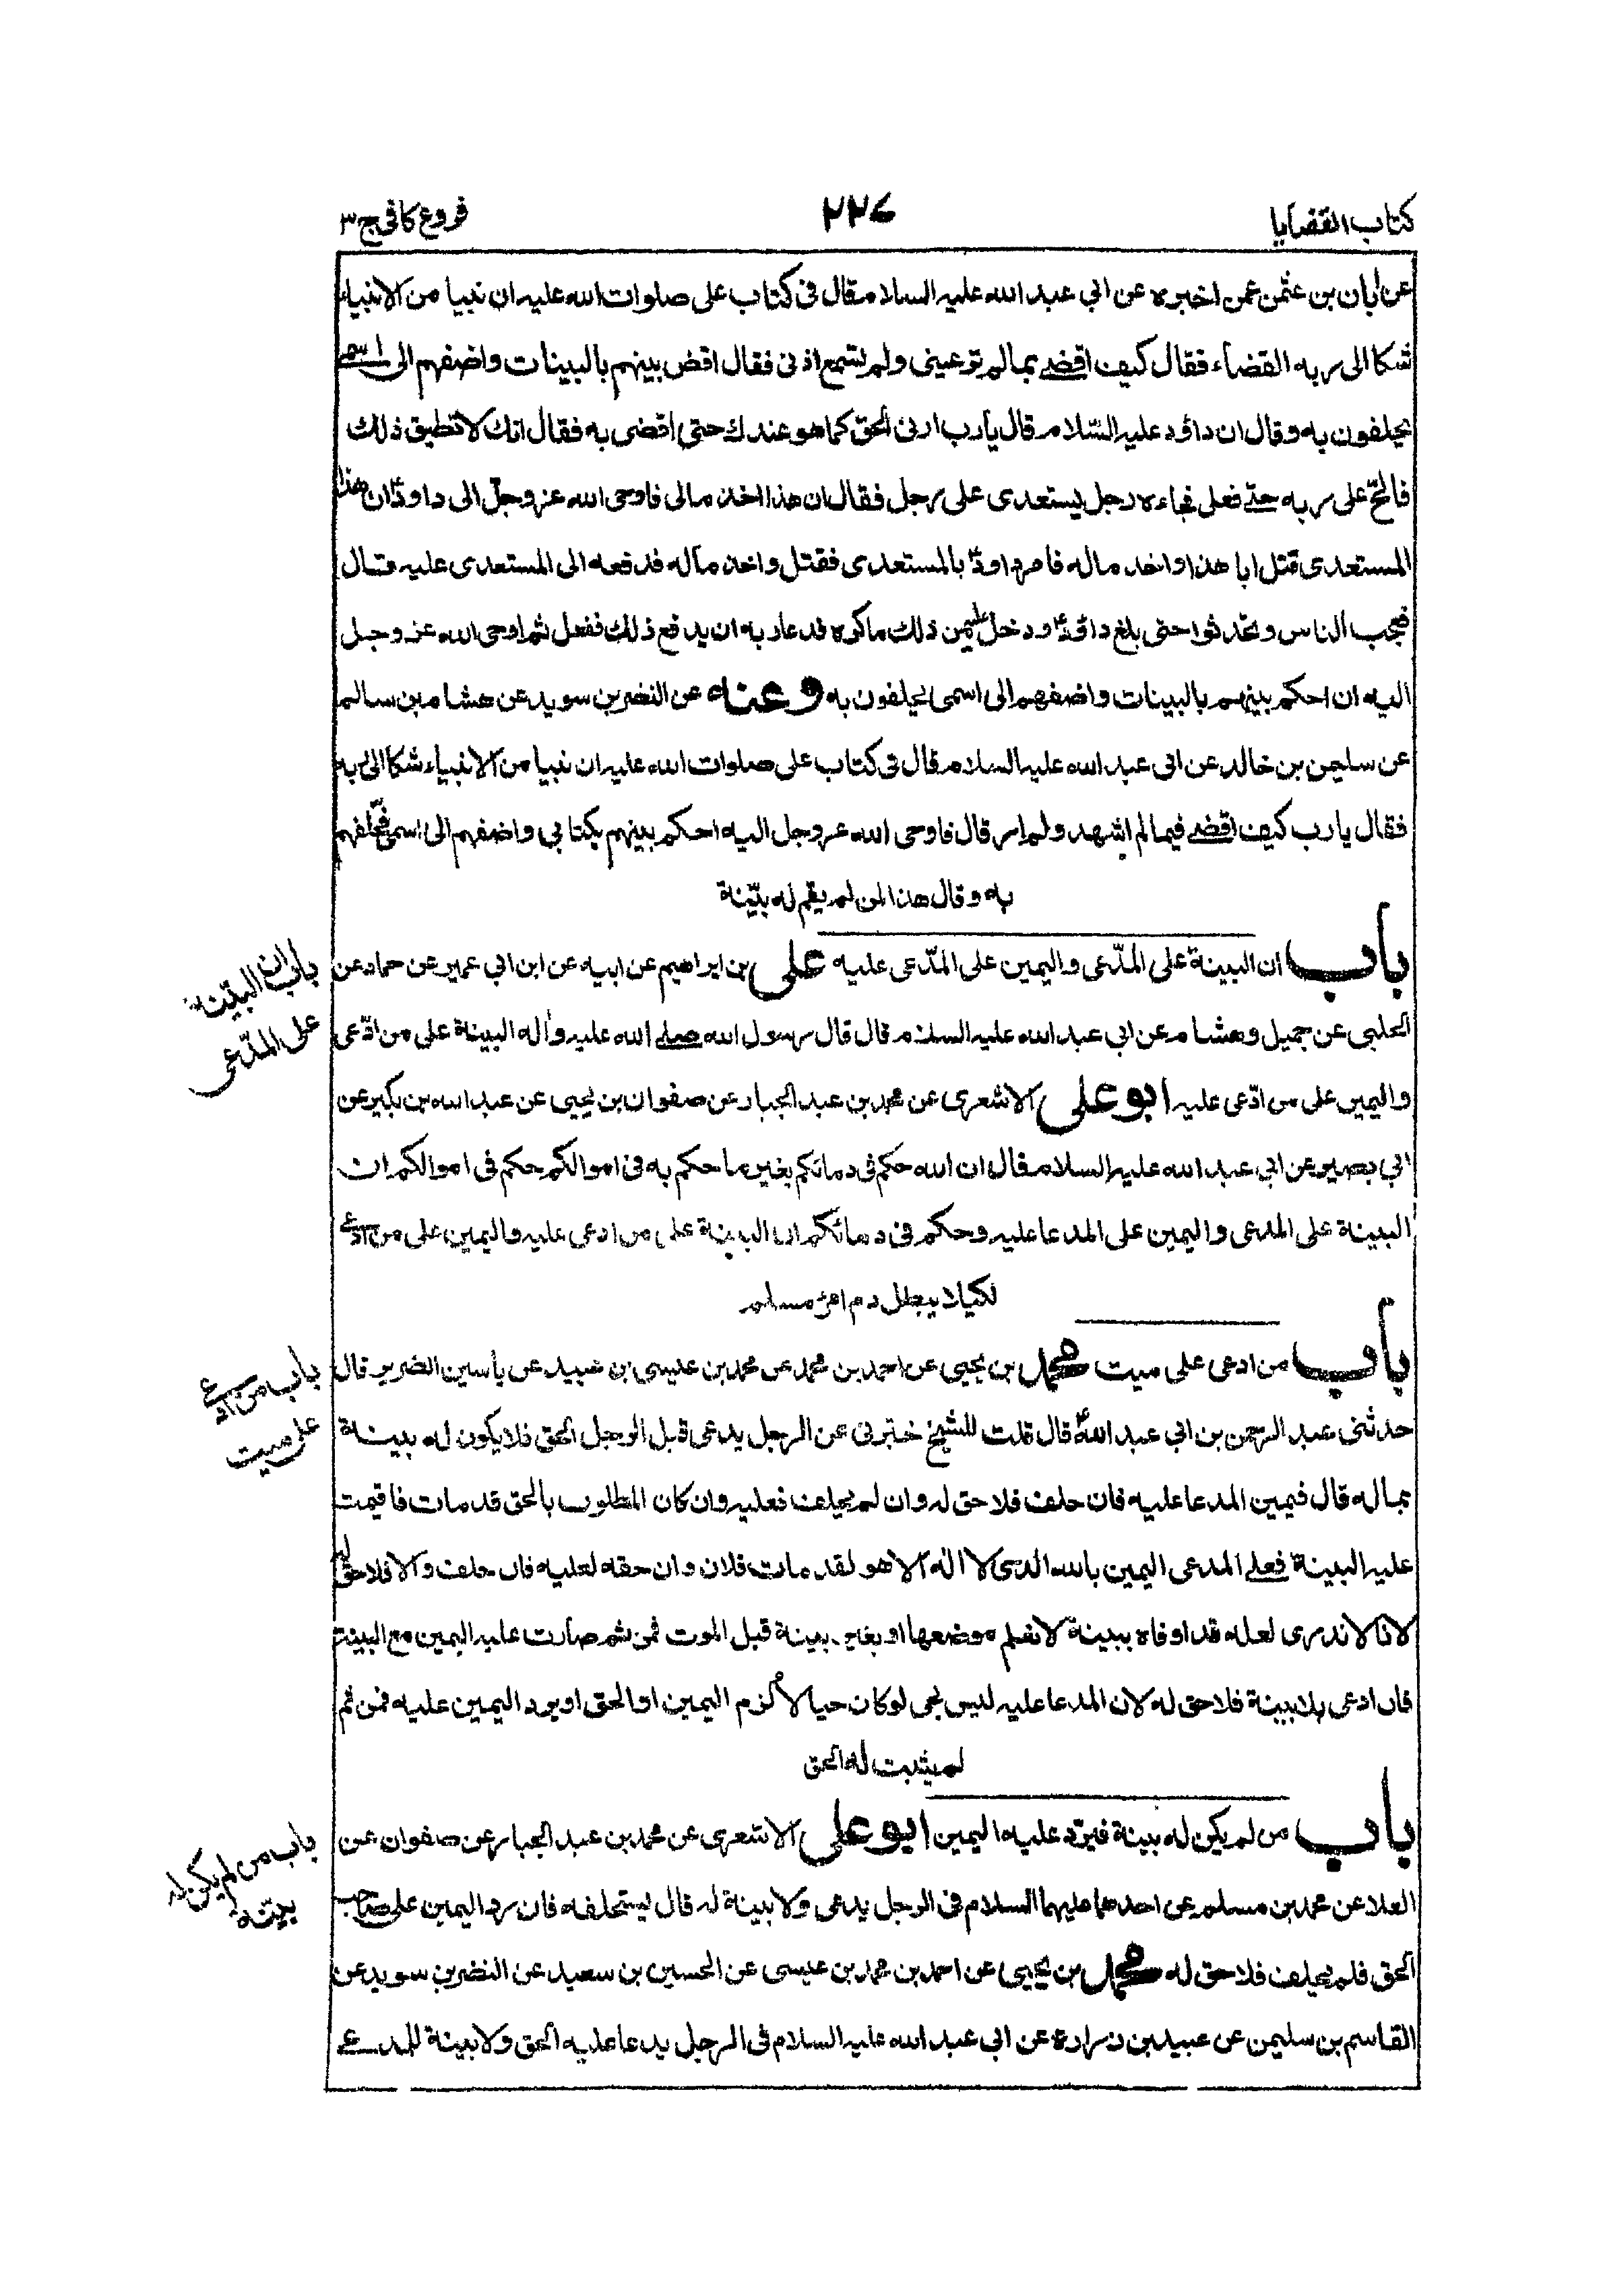 كتاب القضايا
٢٢٧
فروع كافى ج ٣
عن ابان بن عثمن عمن اخبره عن ابي عبد الله عليه السلام قال فى كتاب على صلوات الله عليه ان نبيا من الانبياء
شكا الى ربه القضاء فقال كيف اقضے بما لم تر عينى ولم تسمع اذنى فقال اقض بينهم بالبينات واضفهم الى اسمے
يحلفون به وقال ان داؤد عليه السّلام قال يارب ارنى الحق كما هو عندك حتى اقضى به فقال انك لا تطيق ذلك
فالحّ على ربه حتے فعل فجاءه رجل يستعدى على رجل فقال ان هذا اخذ مالى فاوحى الله عز وجلّ الى داودؑ ان هذا
المستعدى قتل ابا هذا واخذ ماله فامر داودؑ بالمستعدى فقتل واخذ ماله فدفعه الى المستعدى عليه قال
فعجب الناس وتحدثوا حتى بلغ داؤدؑ ودخل عليه من ذلك ماكره فدعا ربه ان يدفع ذلك ففعل ثم اوحى الله عز وجل
اليه ان احكم بينهم بالبينات واضفهم الى اسمى يحلفون به وعنه عن النضر بن سويد عن هشام بن سالم
عن سليمن بن خالد عن ابى عبد الله عليه السلام قال فى كتاب على صلوات الله عليه ان نبيا من الانبياء شكا الى ربه
فقال يا رب كيف اقضے فيما لم اشهد ولم ار قال فاوحى الله عز وجل اليه احكم بينهم بكتابي واضفهم الى اسمى فحلّفهم
به وقال هذا لمن لم يقم له بيّنة
باب ان البينة على المدّعى واليمين على المدّعى عليه على بن ابراهيم عن ابيه عن ابن ابي عمير عن حماد عن
الحلبى عن جميل وهشام عن ابي عبد الله عليه السلام قال قال رسول الله صلے الله عليه واله البينة على من ادّعى
واليمين على من ادّعى عليه ابو على الاشعرى عن محمد بن عبد الجبار عن صفوان بن يحيى عن عبد الله بن بكير عن
ابى بصير عن ابي عبد الله عليه السلام قال ان الله حكم فى دمائكم بغير ما حكم به فى اموالكم حكم فى اموالكم ان
البينة على المدعى واليمين على المدعا عليه وحكم فى دمائكم ان البينة على من ادعى عليه واليمين على من ادّعے
لكيلا يبطل دم امرئ مسلم
باب من ادعى على ميت محمد بن يحيى عن احمد بن محمد عن محمد بن عليسى بن عبيد عن ياسين الضرير قال
حدثنى عبد الرحمن بن ابي عبد اللهؑ قال قلت للشيخ خبّرنى عن الرجل يدعى قبل الرجل الحق فلا يكون له بينة
بماله قال فيمين المدعا عليه فان حلف فلا حق له وان لم يحلف فعليه وان كان المطلوب بالحق قد مات فاقيمت
عليه البينة فعلے المدعى اليمين بالله الذى لا اله الا هو لقد مات فلان وان حقه لعليه فان حلف والا فلا حق له
لانا لا ندرى لعله قد اوفاه ببينة لا نعلم موضعها او بغير بينة قبل الموت فمن ثم صارت عليه اليمين مع البينة
فان ادعى بلا بينة فلا حق له لان المدعا عليه ليس بحى لو كان حيا لاُلزم اليمين او الحق او يرد اليمين عليه فمن ثم
لم يثبت له الحق
باب من لم يكن له بينة فيردّ عليه اليمين ابو على الاشعرى عن محمد بن عبد الجبار عن صفوان عن
العلا عن محمد بن مسلم عن احدهما عليهما السلام فى الرجل يدعى ولا بينة له قال يستحلفه فان رد اليمين على صاحب
الحق فلم يحلف فلا حق له محمد بن يحيى عن احمد بن محمد بن عيسى عن الحسين بن سعيد عن النضر بن سويد عن
القاسم بن سليمن عن عبيد بن زرارة عن ابى عبد الله عليه السلام فى الرجل يدعا عليه الحق ولا بينة للمدعے
باب ان البيّنة
على المدّعى
باب من ادّعے
على ميت
باب من لم يكن له
بيّنة